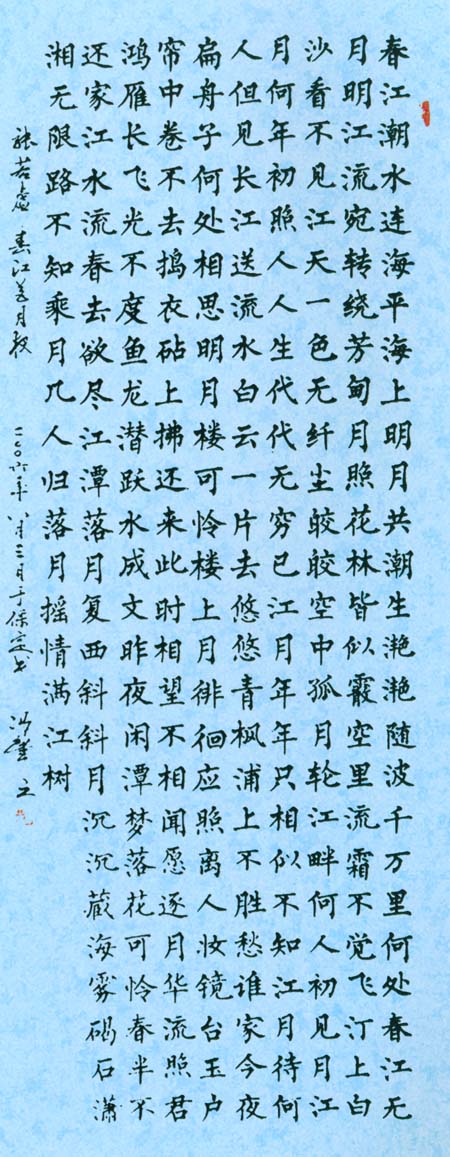 春江潮水连海平海上明月共潮生滟滟随波千万里何处春江无
月明江流宛转绕芳甸月照花林皆似霰空里流霜不觉飞汀上白
沙看不见江天一色无纤尘皎皎空中孤月轮江畔何人初见月江
月何年初照人人生代代无穷已江月年年只相似不知江月待何
人但见长江送流水白云一片去悠悠青枫浦上不胜愁谁家今夜
扁舟子何处相思明月楼可怜楼上月徘徊应照离人妆镜台玉户
帘中卷不去捣衣砧上拂还来此时相望不相闻愿逐月华流照君
鸿雁长飞光不度鱼龙潜跃水成文昨夜闲潭梦落花可怜春半不
还家江水流春去欲尽江潭落月复西斜斜月沉沉藏海雾碣石潇
湘无限路不知乘月几人归落月摇情满江树
张若虚春江花月夜 二〇〇六年八月三日于保定书